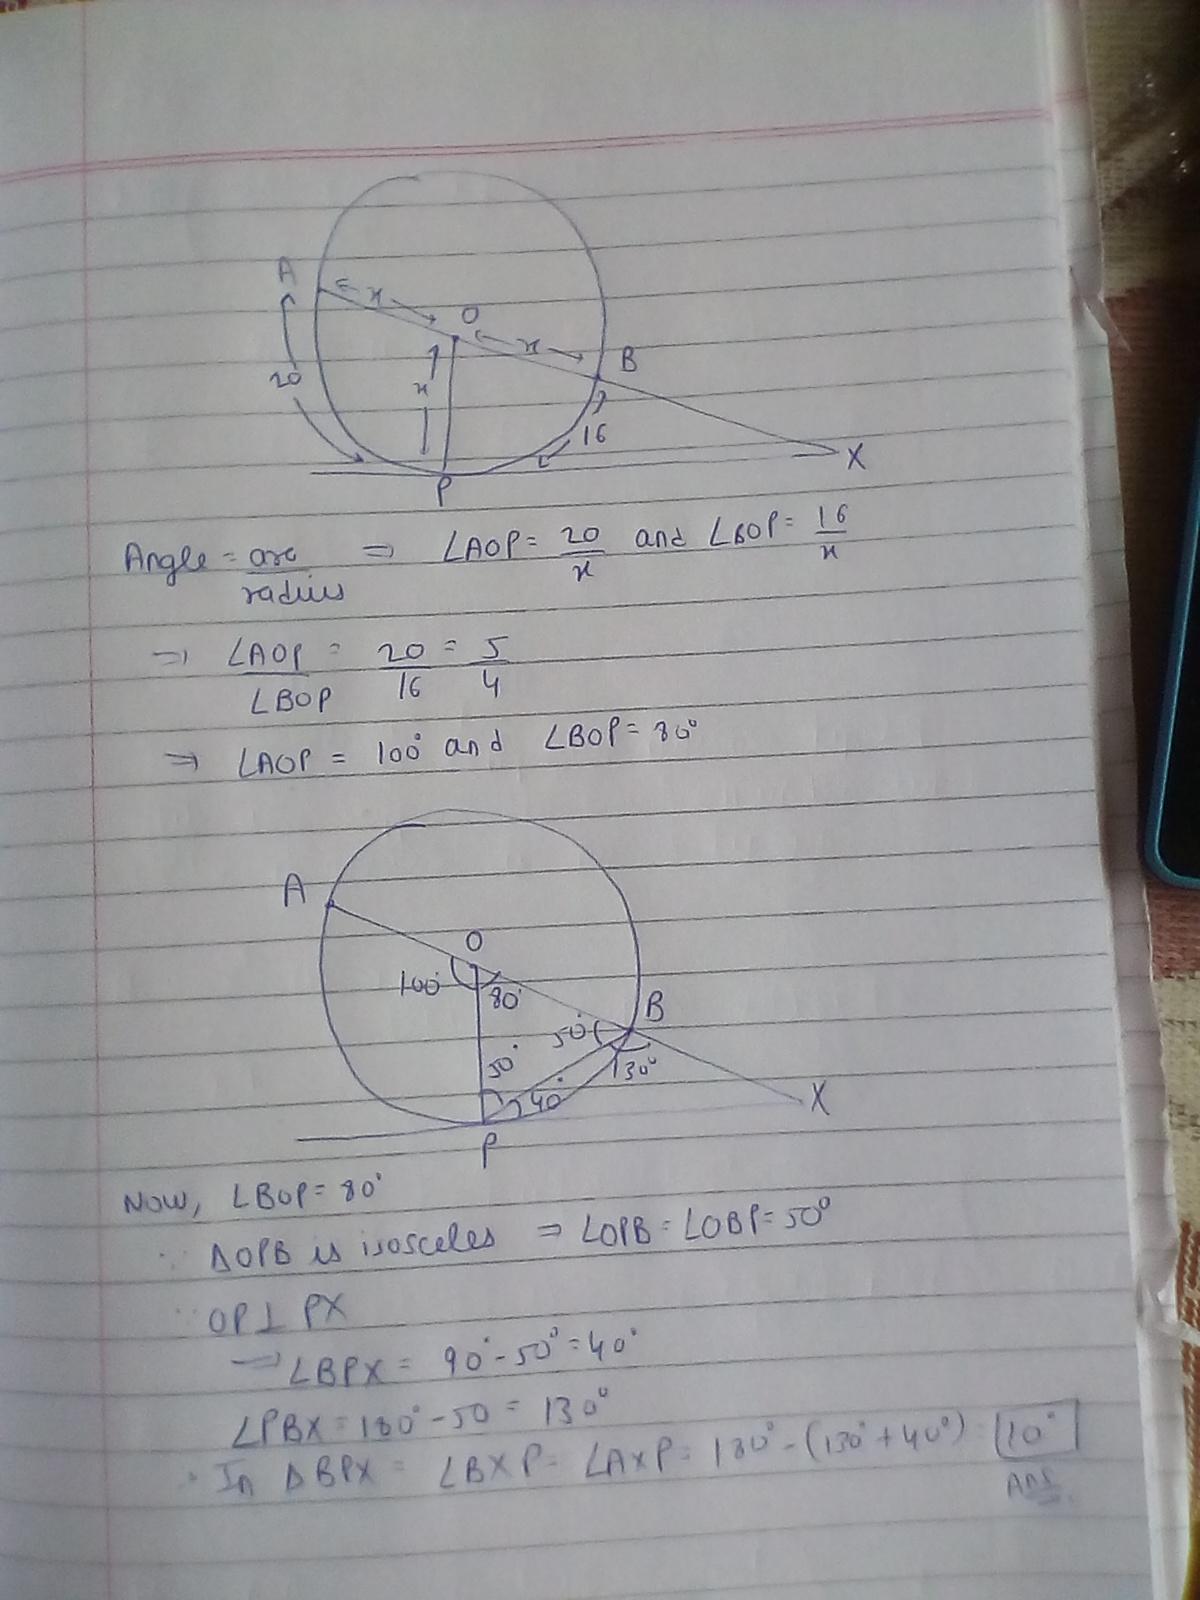 A
x
O
x
B
20
x
16
P
X
Angle = arc/radius ⇒ ∠AOP = 20/x and ∠BOP = 16/x
⇒ ∠AOP/∠BOP = 20/16 = 5/4
⇒ ∠AOP = 100° and ∠BOP = 80°
A
O
100°
80°
B
50°
50°
130°
40°
X
P
Now, ∠BOP = 80°
∵ ΔOPB is isosceles ⇒ ∠OPB = ∠OBP = 50°
∵ OP⊥PX
⇒ ∠BPX = 90° - 50° = 40°
∠PBX = 180° - 50 = 130°
∴ In ΔBPX = ∠BXP = ∠AXP = 180° - (130° + 40°) = 10°
Ans.